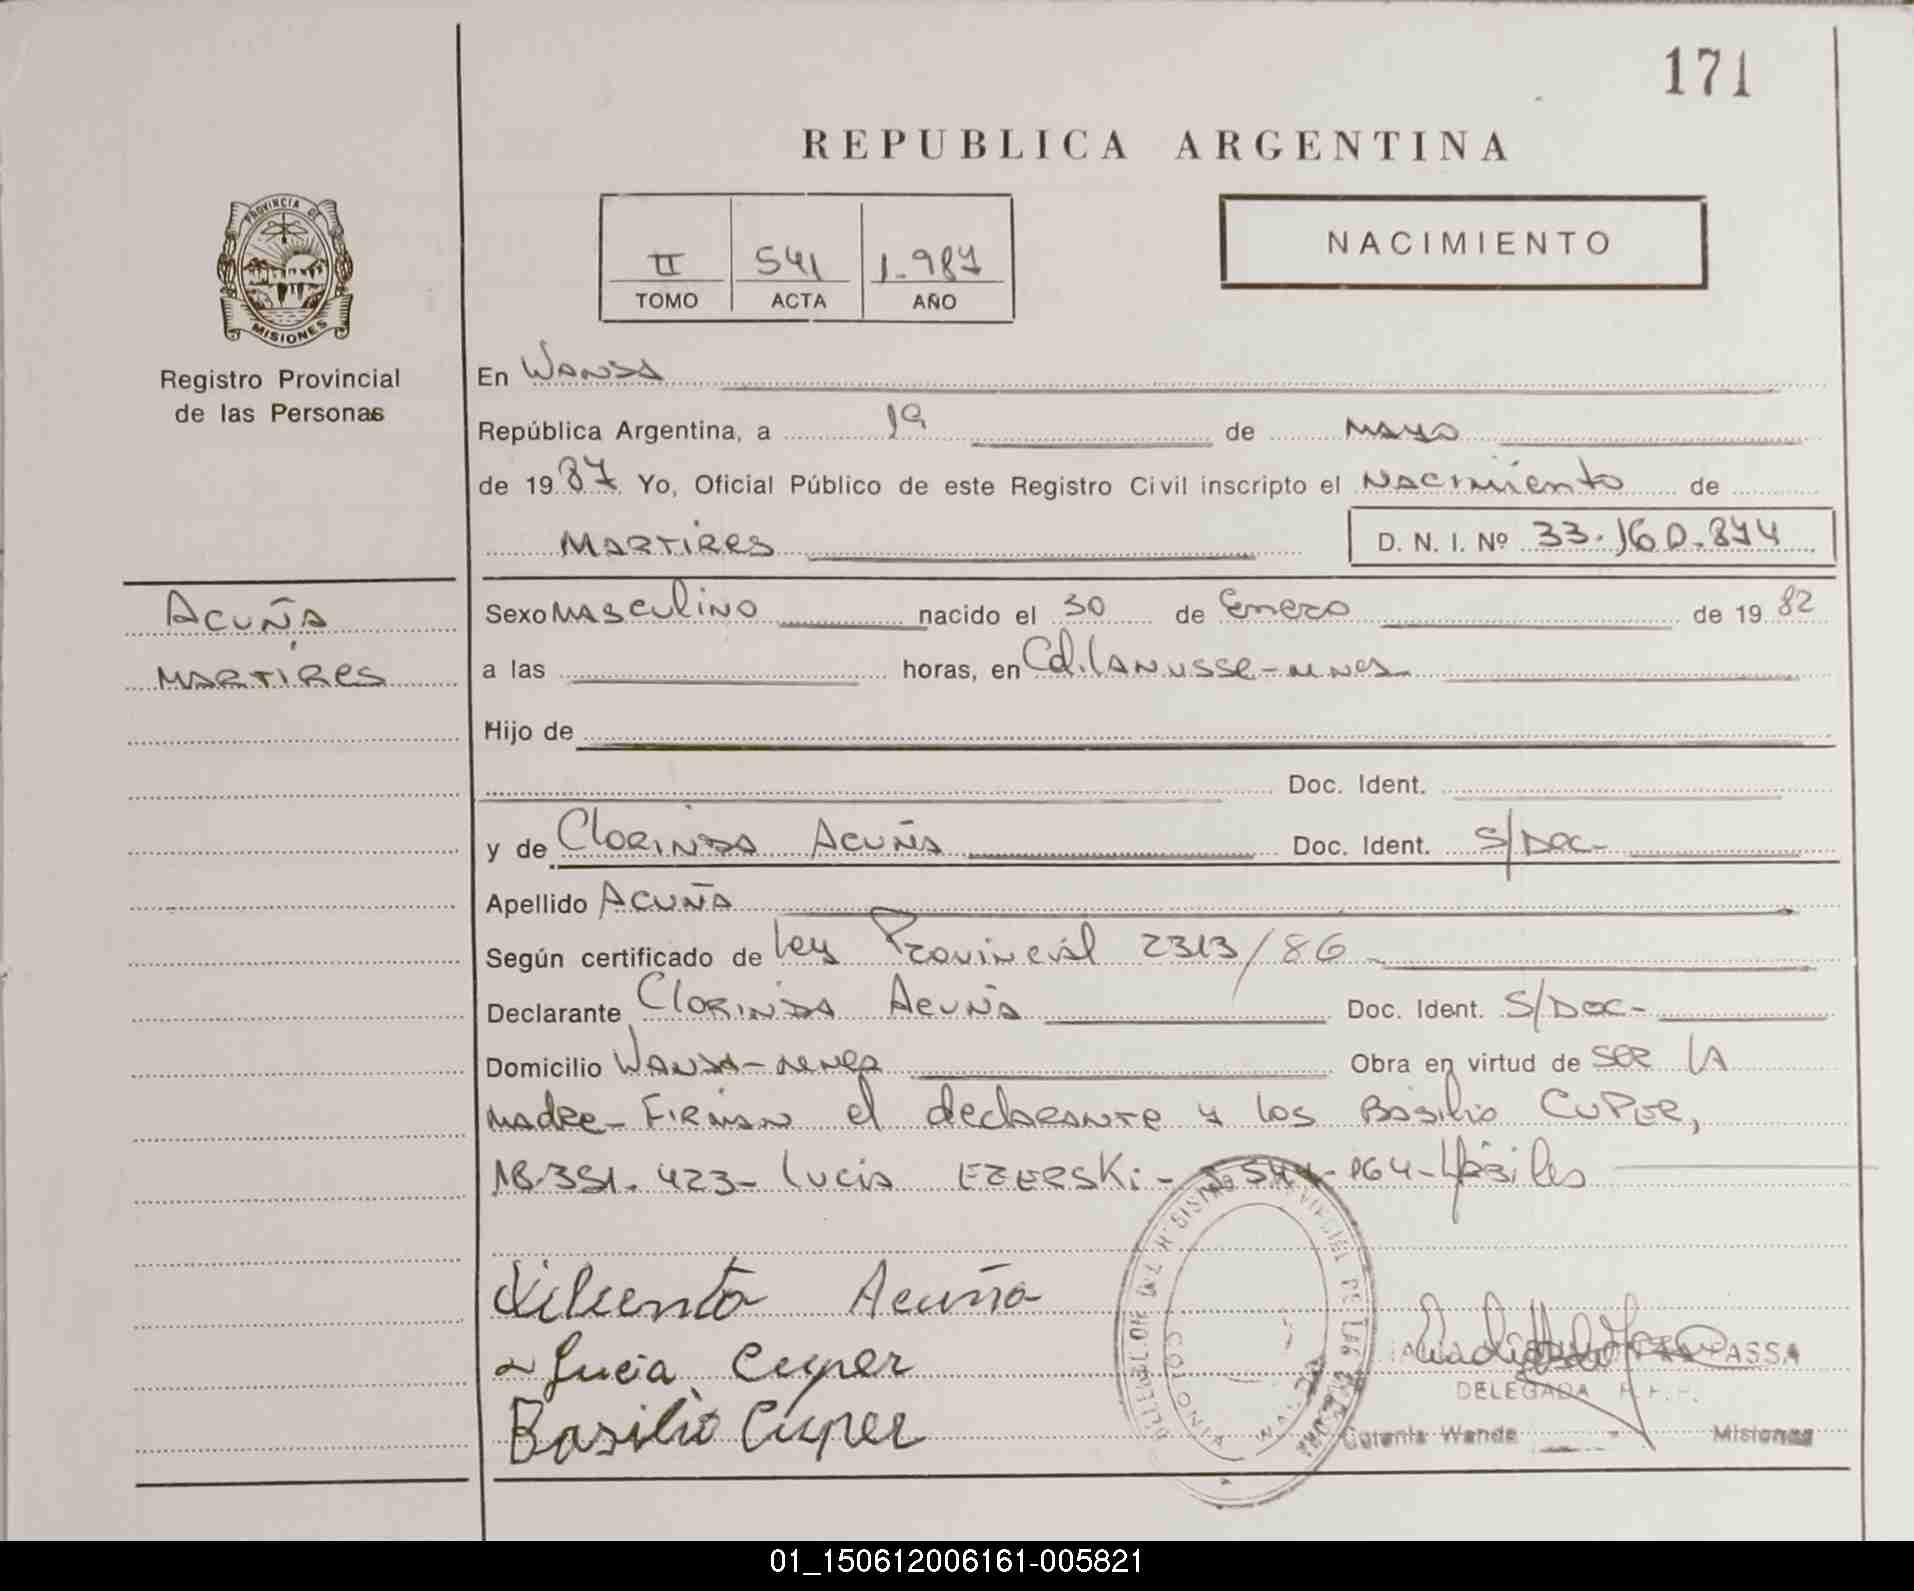 171
REPUBLICA ARGENTINA
PROVINCIA DE MISIONES
II 541 1.987
TOMO ACTA AÑO
NACIMIENTO
Registro Provincial
de las Personas
En Wanda
República Argentina, a 19 de mayo
de 1987 Yo, Oficial Público de este Registro Civil inscripto el Nacimiento de
Martires D. N. I. Nº 33.160.874
Acuña
Martires
Sexo Masculino nacido el 30 de Enero de 1982
a las horas, en Cd. Lanusse-Mnes
Hijo de
Doc. Ident.
y de Clorinda Acuña Doc. Ident. S/Doc-
Apellido Acuña
Según certificado de Ley Provincial 2313/86-
Declarante Clorinda Acuña Doc. Ident. S/Doc-
Domicilio Wanda-Mnes Obra en virtud de ser la
madre- Firman el declarante y los Basilio Cuper,
18.351.423- Lucia Ezerski- 164- Hábiles
Acuña
Lucia Cuper
Basilio Cuper
PASSA
DELEGADA R.P.P.
Colonia Wanda Misiones
01_150612006161-005821